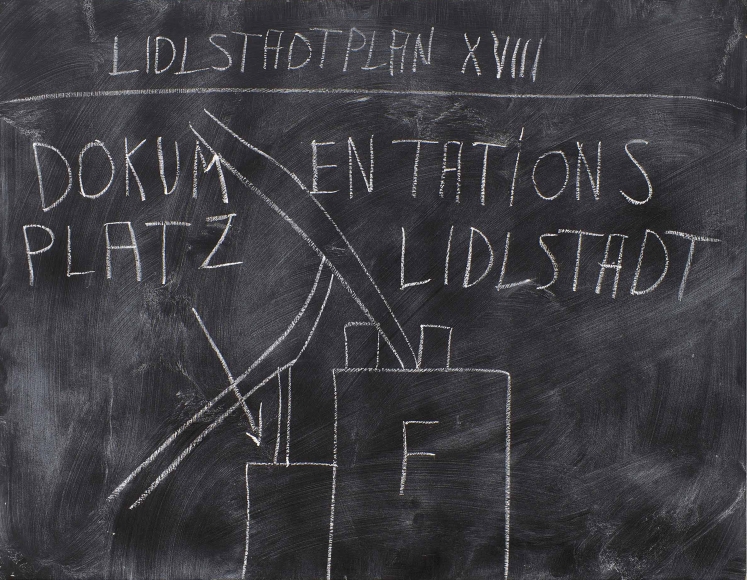 LIDLSTADTPLAN XVIII
DOKUMENTATIONS
PLATZ LIDLSTADT
F